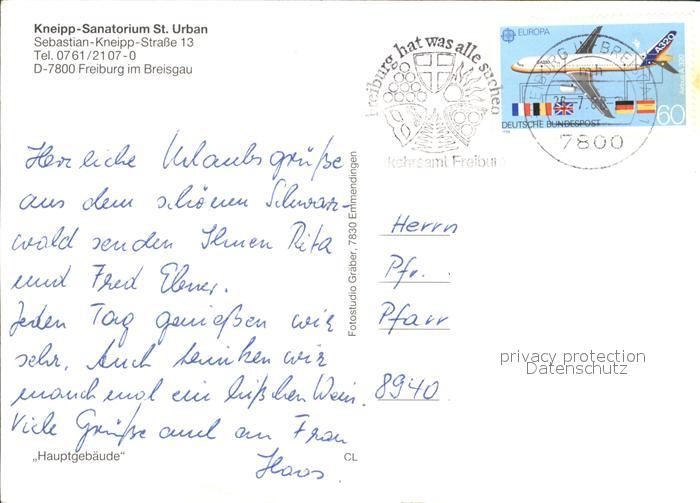 Kneipp-Sanatorium St. Urban
Sebastian-Kneipp-Straße 13
Tel. 0761/2107-0
D-7800 Freiburg im Breisgau
Freiburg hat was alle suchen
Verkehrsamt Freiburg
EUROPA
A320
DEUTSCHE BUNDESPOST
60
7800
Herzliche Urlaubsgrüße
aus dem schönen Schwarz-
wald senden Ihnen Rita
und Fred Ebner.
Jeden Tag genießen wir
sehr. Auch trinken wir
manchmal ein bißchen Wein.
Viele Grüße auch an Frau
Haas.
Fotostudio Gräber, 7830 Emmendingen
Herrn
Pfr.
Pfarr
8940
privacy protection
Datenschutz
„Hauptgebäude"
CL